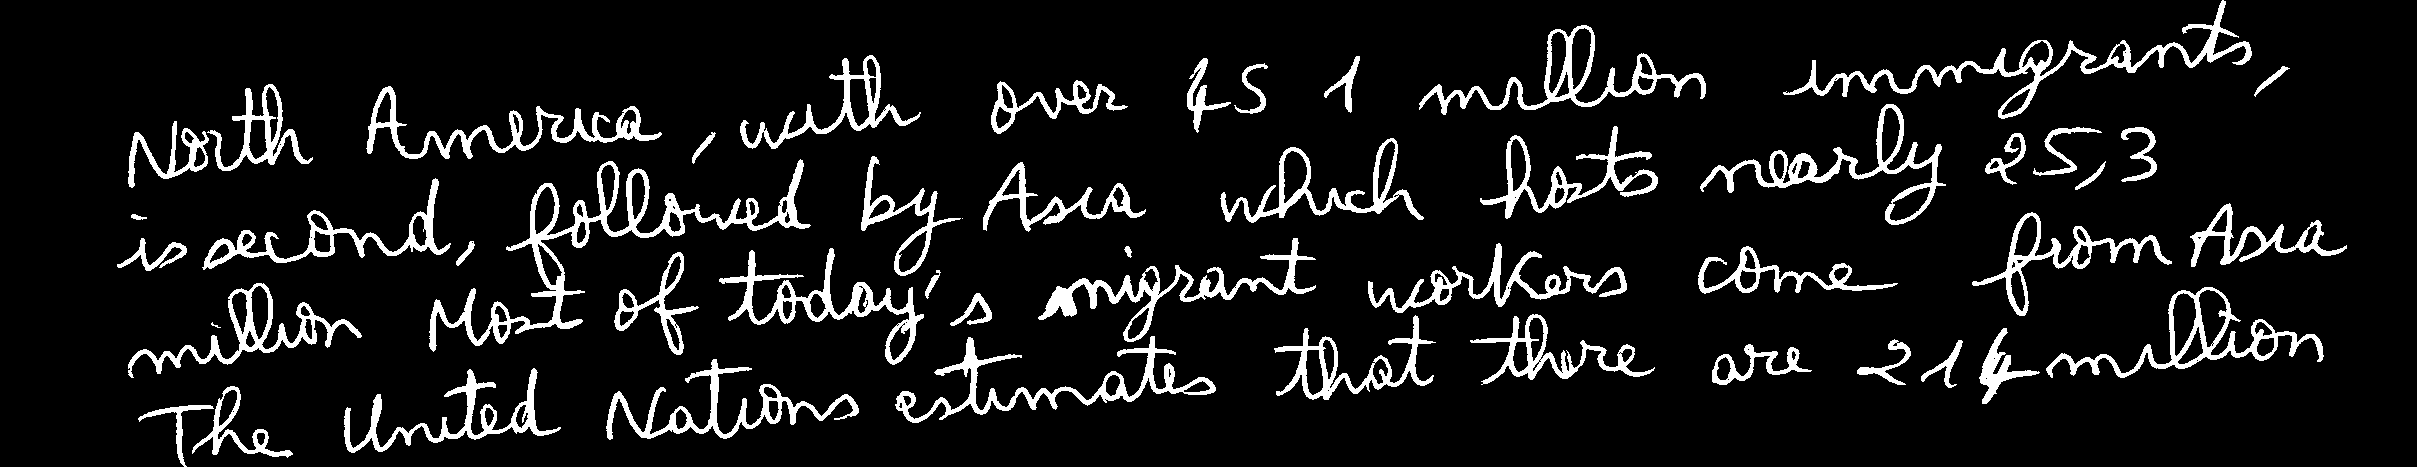 North America, with over 45 1 million immigrants,
is second, followed by Asia which hosts nearly 25,3
million Most of today's migrant workers come from Asia
The United Nations estimates that there are 214 million